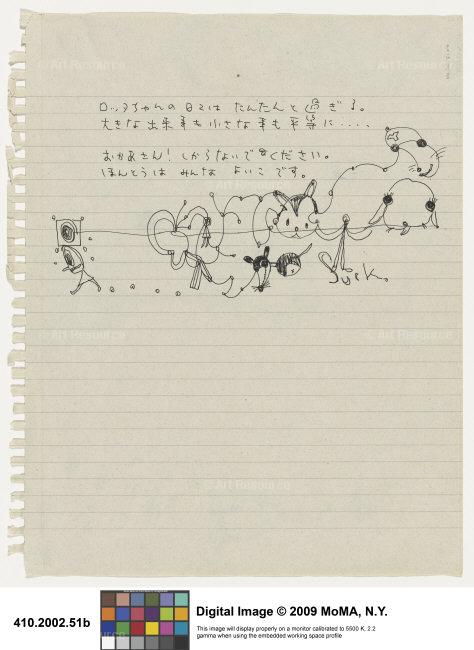 ロッタちゃんの日々は たんたんと 過ぎる。
大きな出来事も小さな事も平等に・・・・
おかあさん！しからないでください。
ほんとうは みんな よいこ です。
© Art Resource
© Art Resource
© Art Resource
© Art Resource
© Art Resource
410.2002.51b
Digital Image © 2009 MoMA, N.Y.
This image will display properly on a monitor calibrated to 5500 K, 2.2
gamma when using the embedded working space profile